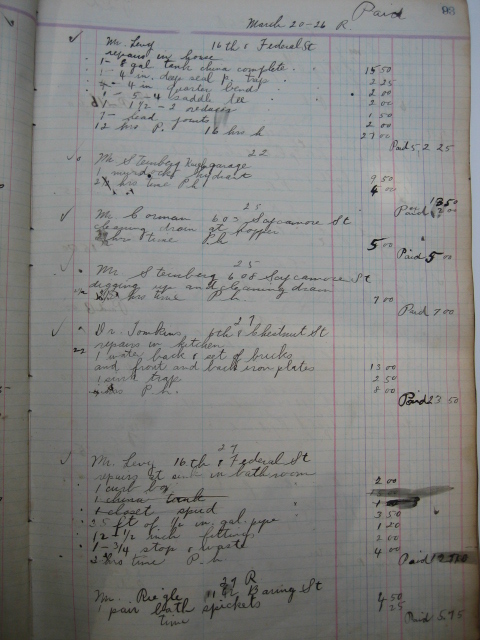 Paid
March 20-26 R.
Mr. Levy 16th & Federal St
repairs in house
1- 8 gal tank china complete 15 50
1- 4 in. deep seal P. trap 2 25
4 in quarter bend 2 00
1- 5-4 saddle tee 2 00
1- 1½-2 reducer 1 50
1- lead joints 2 00
12 hrs P. 16 hrs h 27 00
Paid 52 25
22
Mr Sternberg garage
1 murdocks hydrant 9 50
hrs time P h 4 00
Paid 13 50
25
Mr. Corman 603 Sycamore St
cleaning drain at hopper
hrs time Ph 5 00
Paid 5 00
25
Mr Sternberg 608 Sycamore St
digging up and cleaning drain
hrs time P h. 7 00
Paid 7 00
27
Dr. Tomkins 6th & Chestnut St
repairs in kitchen
1 water back & set of bricks
and front and back iron plates 13 00
1 trap 2 50
P h. 8 00
Paid 23 50
27
Mr. Levy 16th & Federal St
repairs at in bathroom
1 curb box 2 00
1 china tank
1 closet spud 3 50
25 ft of ½ in gal. pipe 1 20
12 ½ inch fittings 2 00
1- ¾ stop & waste
2 hrs time P h 4 00
Paid
27 R
Mr. Riegle Baring St
1 pair bath spickets 4 50
time 1 25
Paid 5.75